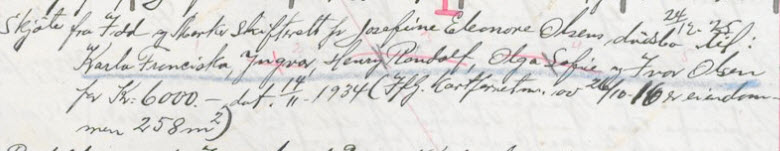 24/12-25
Skjøte fra Idd og Marker skifterett for Josefine Eleonore Olsens dødsbo til:
Karla Franciska, Ingvar, Henry Randolf, Olga Sofie og Ivar Olsen
for Kr: 6000.- dat. 14/11-1934 (Iflg. Kartforretn. av 26/10-16 er eiendom-
men 258 m²)